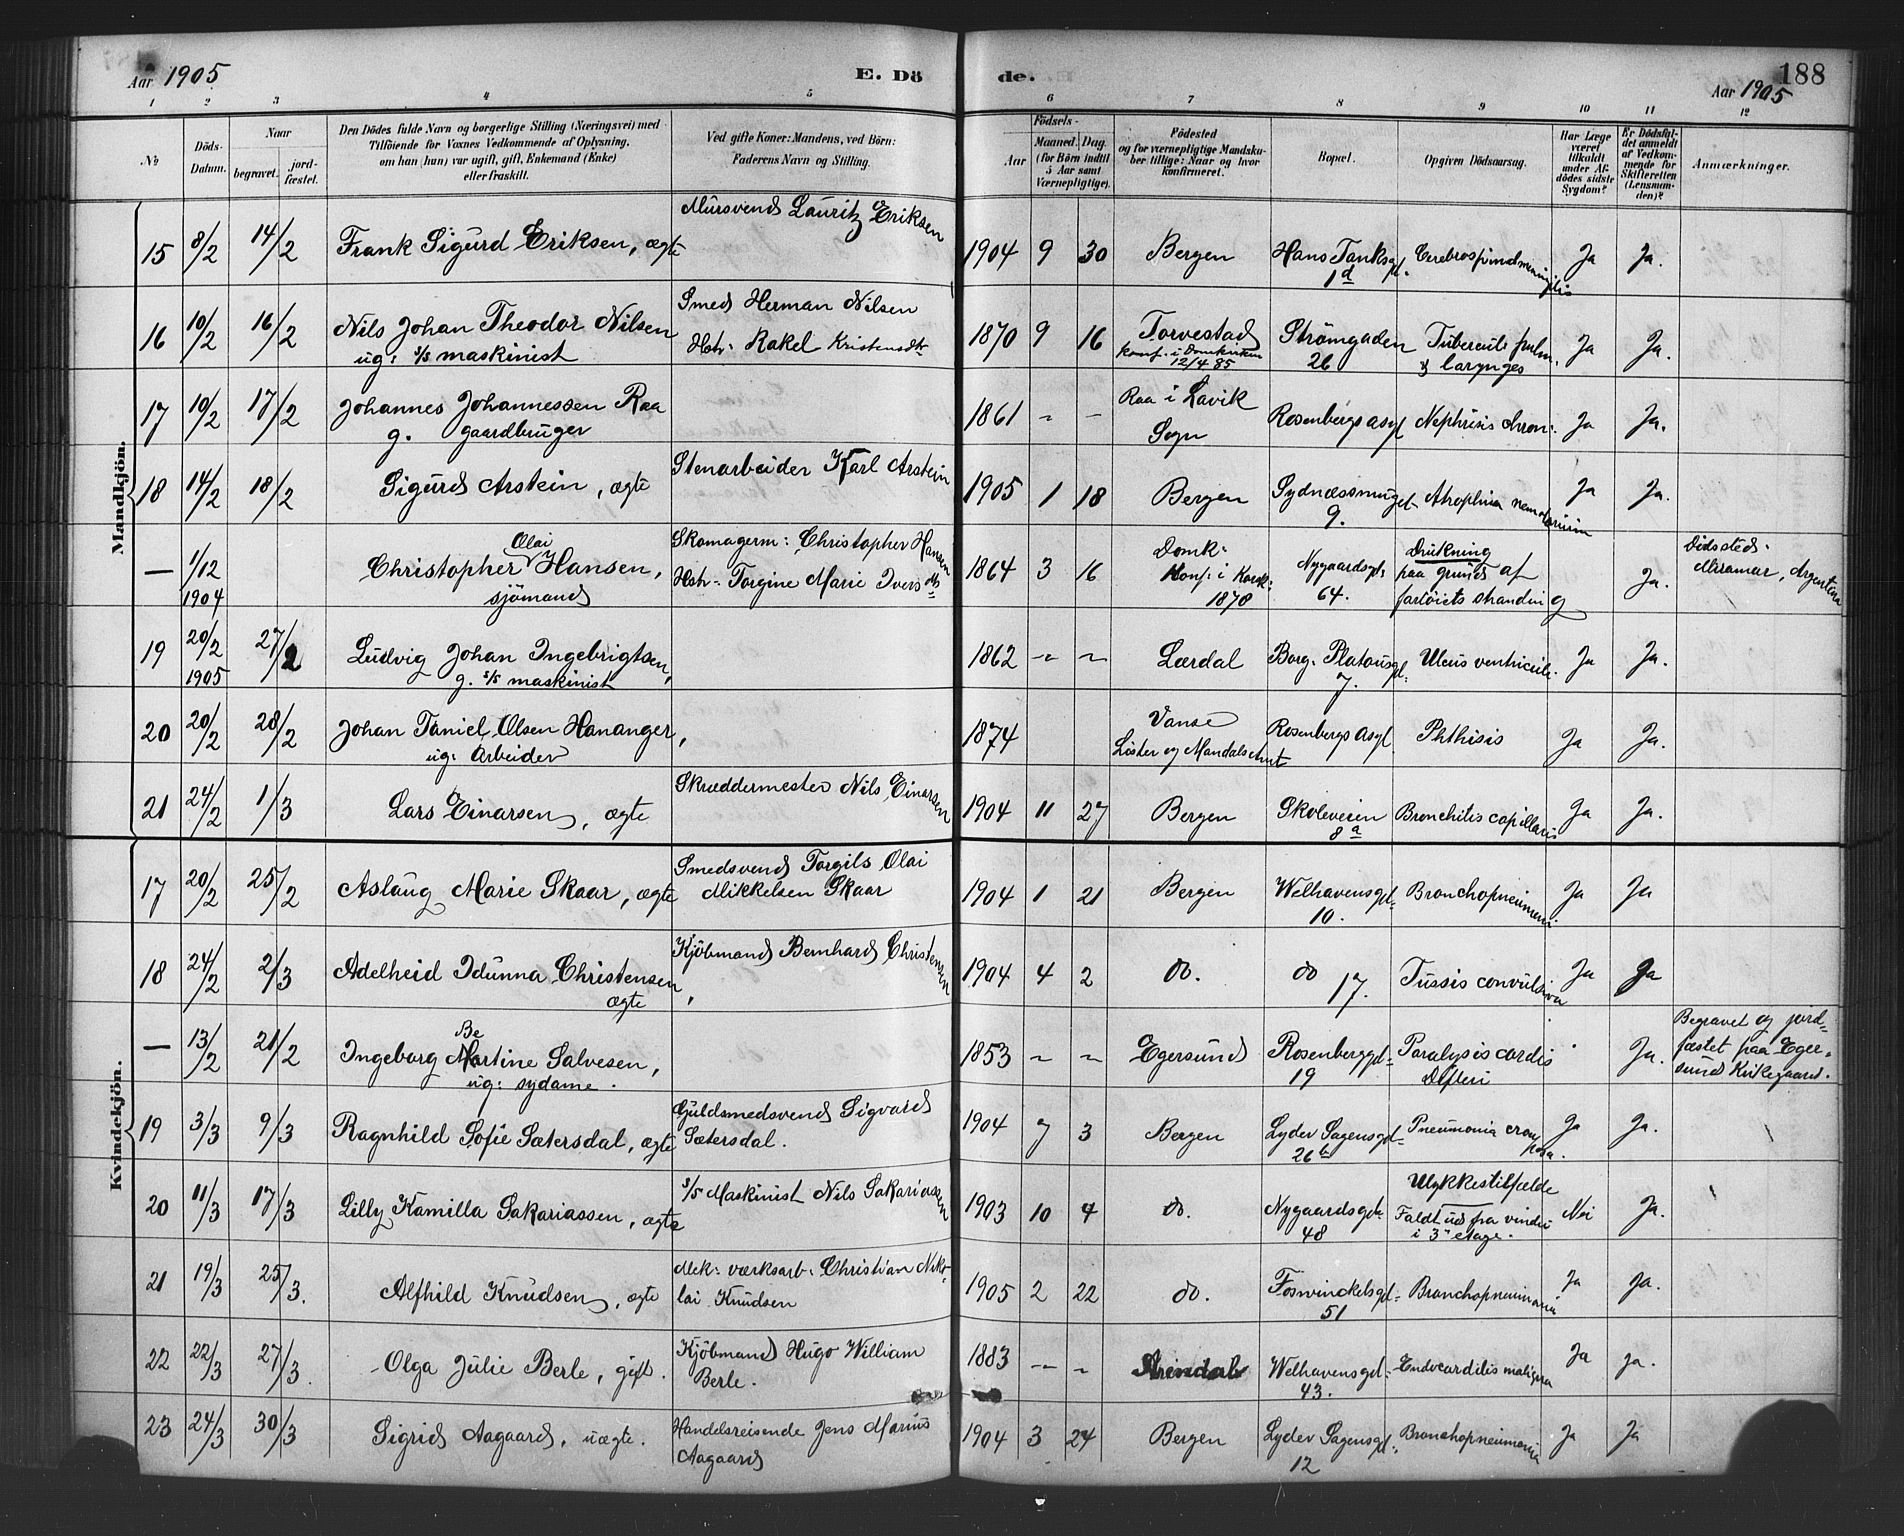 Aar 1905
E. Dö
de.
188
Aar 1905
1 2 3 4 5 6 7 8 9 10 11 12
No
Döds-Datum.
Naar
begravet.
jord-fæstet.
Den Dödes fulde Navn og borgerlige Stilling (Næringsvei) med
Tilföiende for Voxnes Vedkommende af Oplysning,
om han (hun) var ugift, gift, Enkemand (Enke)
eller fraskilt.
Ved gifte Koner: Mandens, ved Börn:
Faderens Navn og Stilling.
Födsels-
Aar
Maaned. Dag.
(for Börn indtil
5 Aar samt
Værnepligtige).
Födested
og for værnepligtige Mandsku-
ber tillige: Naar og hvor
konfirmeret.
Bopæl.
Opgiven Dödsaarsag.
Har Læge
været
tilkaldt
under Af-
dödes sidste
Sygdom?
Er Dödsfal-
det anmeldt
af Vedkom-
mende for
Skifteretten
(Lensman-
den)?
Anmærkninger.
Mandkjön.
15 8/2 14/2 Frank Sigurd Eriksen, ægte Mursvend Lauritz Eriksen 1904 9 30 Bergen Hans Tanksgd. 1d Cerebrospinalmeningitis Ja Ja.
16 10/2 16/2 Nils Johan Theodor Nilsen Smed Herman Nilsen 1870 9 16 Torvestad Strömgaden Tubercul: pulm. Ja Ja.
ug: s/s maskinist Hstr: Rakel Kristensdtr konf. i Domkirken 26 & laryngis
12/4 85
17 10/2 17/2 Johannes Johannessen Raa 1861 - - Raa i Lavik Rosenbergs asyl Nephrisis chron: Ja Ja.
g. gaardbruger Sogn
18 14/2 18/2 Sigurd Arstein, ægte Stenarbeider Karl Arstein 1905 1 18 Bergen Sydnæssmuget 9. Atrophia Ja Ja.
— 1/12 1904 Christopher Olai Hansen, Skomagerm: Christopher Hansen 1864 3 16 Domk: Nygaardsgd: Drukning Ja. Dödssted:
sjömand Hstr: Torgine Marie Iversdtr Konf: i Korsk: 64. paa grund af Miramar, Argentina
1878 fartöiets stranding
19 20/2 1905 27/2 Ludvig Johan Ingebrigtsen, 1862 - - Lærdal Borg. Platousgd: 7. Ulcus ventriculi. Ja Ja.
g. s/s maskinist
20 20/2 28/2 Johan Taniel Olsen Hananger, 1874 Vanse Rosenbergs Asyl Phthisis Ja Ja.
ug: Arbeider Lister og Mandals Amt
21 24/2 1/3 Lars Einarsen, ægte Skræddermester Nils Einarsen 1904 11 27 Bergen Skoleveien 8a Bronchitis capillaris Ja Ja.
Kvindekjön.
17 20/2 25/2 Aslaug Marie Skaar, ægte Smedsvend Torgils Olai 1904 1 21 Bergen Welhavensgd: 10. Bronchopneumoni. Ja Ja
Mikkelsen Skaar
18 24/2 2/3 Adelheid Idunna Christensen, Kjöbmand Bernhard Christensen 1904 4 2 do. do 17. Tussis convulsiva Ja Ja
ægte
— 13/2 21/2 Ingeborg Be Martine Salvesen, 1853 - - Egersund Rosenberggd: Paralysis cordis Ja. Begravet og jord-
ug: sydame. 19 Difteri fæstet paa Eger-
sund Kirkegaard.
19 3/3 9/3 Ragnhild Sofie Sætersdal, ægte Guldsmedsvend Sigvard 1904 7 3 Bergen Lyder Sagensgd: 26b Pneumonia crouposa. Ja Ja.
Sætersdal.
20 11/3 17/3 Lilly Kamilla Sakariassen, ægte s/s Maskinist Nils Sakariassen 1903 10 4 do. Nygaardsgd. 48 Ulykkestilfælde Nei Ja.
Faldt ud fra vindu
i 3' etage.
21 19/3 25/3. Alfhild Knudsen, ægte Mek: værksarb: Christian Niko- 1905 2 22 do. Foswinckelsgd: 51 Bronchopneumonia Ja Ja.
lai Knudsen
22 22/3 27/3. Olga Julie Berle, gift. Kjöbmand Hugo William 1883 - - Arendal Welhavensgd: 43. Endocarditis maligna Ja Ja.
Berle.
23 24/3 30/3 Sigrid Aagaard, uægte. Handelsreisende Jens Marius 1904 3 24 Bergen Lyder Sagensgd: 12 Bronchopneumonia Ja Ja
Aagaard